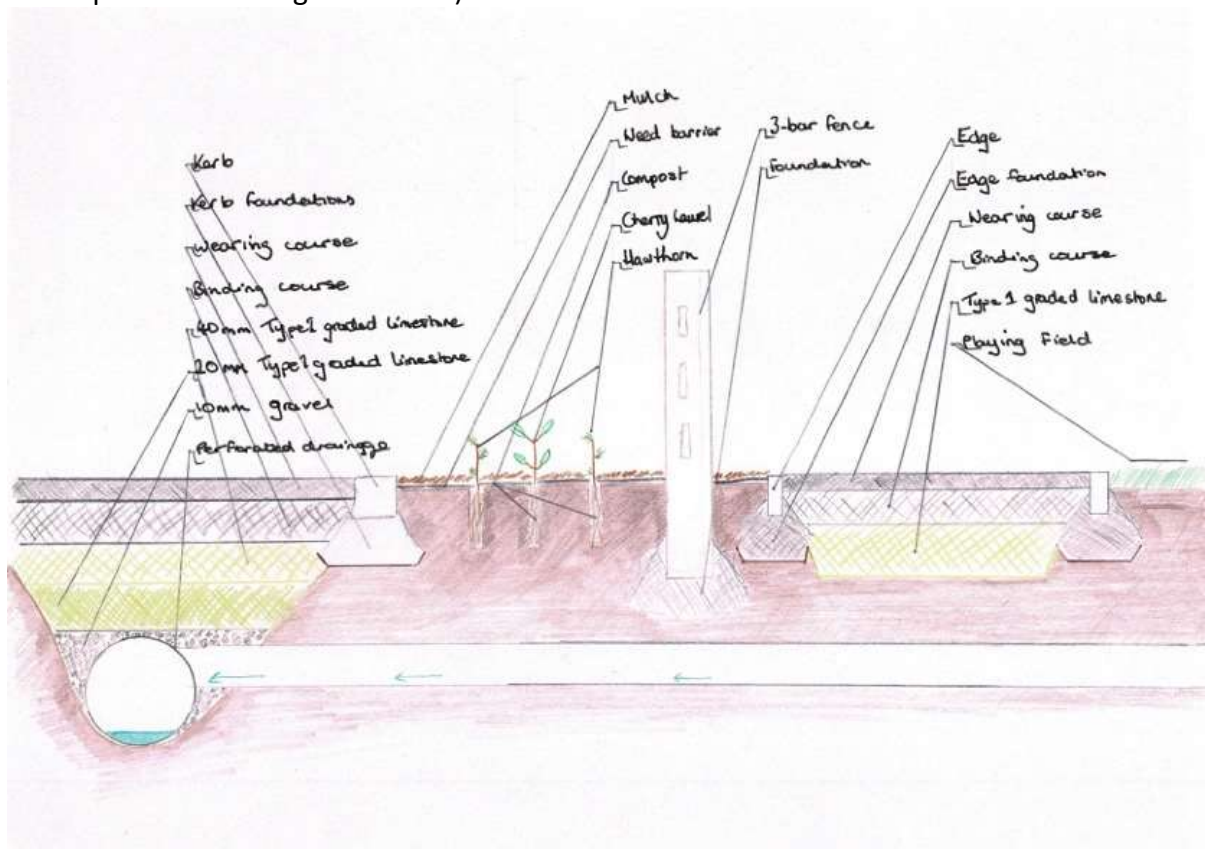 Kerb
Kerb foundations
Wearing course
Binding course
40mm Type1 graded limestone
20mm Type1 graded limestone
10mm gravel
Perforated drainage
Mulch
Weed barrier
Compost
Cherry laurel
Hawthorn
3-bar fence
Foundation
Edge
Edge foundation
Wearing course
Binding course
Type 1 graded limestone
Playing Field